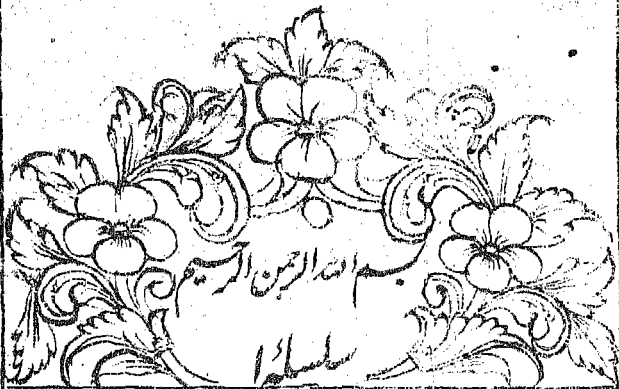 بسم الله الرحمن الرحيم
سلسلہ ۱